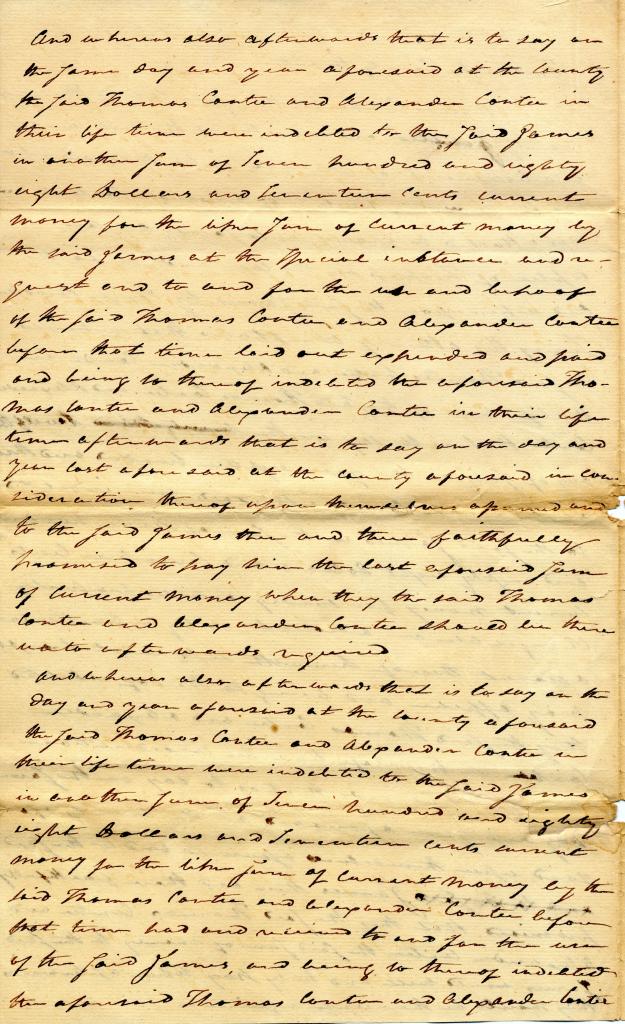 And whereas also afterwards that is to say on
the same day and year aforesaid at the County
the said Thomas Contee and Alexander Contee in
their life time were indebted to the said James
in another sum of Seven hundred and eighty
eight Dollars and Seventeen cents current
money for the like sum of current money by
the said James at the special instance and re-
quest and to and for the use and behoof
of the said Thomas Contee and Alexander Contee
before that time laid out expended and paid
and being so thereof indebted the aforesaid Tho-
mas Contee and Alexander Contee in their life
time afterwards that is to say on the day and
year last aforesaid at the County aforesaid in con
sideration thereof upon themselves assumed and
to the said James then and there faithfully
promised to pay him the last aforesaid sum
of current money when they the said Thomas
Contee and Alexander Contee should be there
unto afterwards required
and whereas also afterwards that is to say on the
day and year aforesaid at the County aforesaid
the said Thomas Contee and Alexander Contee in
their life time were indebted to the said James
in another sum of Seven hundred and eighty
eight Dollars and Seventeen cents current
money for the like sum of current money by the
said Thomas Contee and Alexander Contee before
that time had and received to and for the use
of the said James, and being so thereof indebted
the aforesaid Thomas Contee and Alexander Contee